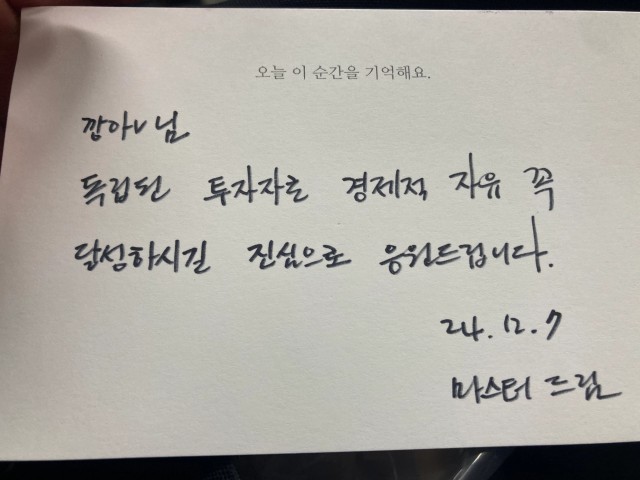 오늘 이 순간을 기억해요.
님
독립된 투자자로 경제적 자유 꼭
달성하시길 진심으로 응원드립니다.
24.12.7
마스터 드림